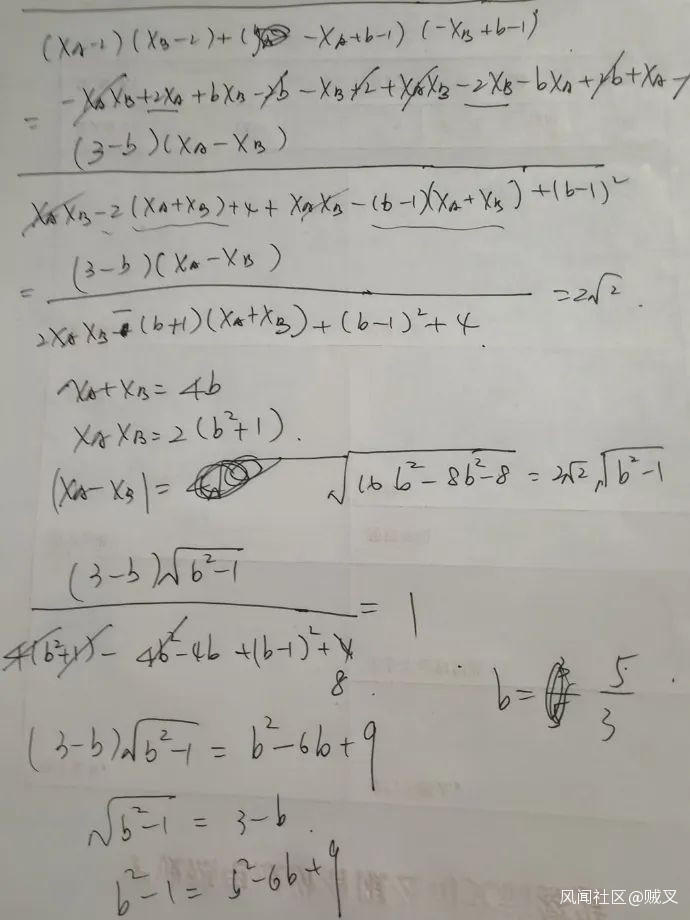 (x_A-2)(x_B-2)+( -x_A+b-1)(-x_B+b-1)
= -x_A x_B+2x_A+bx_B-2b-x_B+2+x_A x_B-2x_B-bx_A+2b+x_A-
(3-b)(x_A-x_B)
x_A x_B-2(x_A+x_B)+4+x_A x_B-(b-1)(x_A+x_B)+(b-1)²
= (3-b)(x_A-x_B)
2x_A x_B-(b+1)(x_A+x_B)+(b-1)²+4
=2√2.
x_A+x_B=4b
x_A x_B=2(b²+1).
|x_A-x_B|= √(16b²-8b²-8)=2√2√(b²-1)
(3-b)√(b²-1)
4(b²+1)-4b²-4b+(b-1)²+4
= 1
8
b= 5/3.
(3-b)√(b²-1)=b²-6b+9
√(b²-1)=3-b.
b²-1=b²-6b+9
风闻社区@贼叉